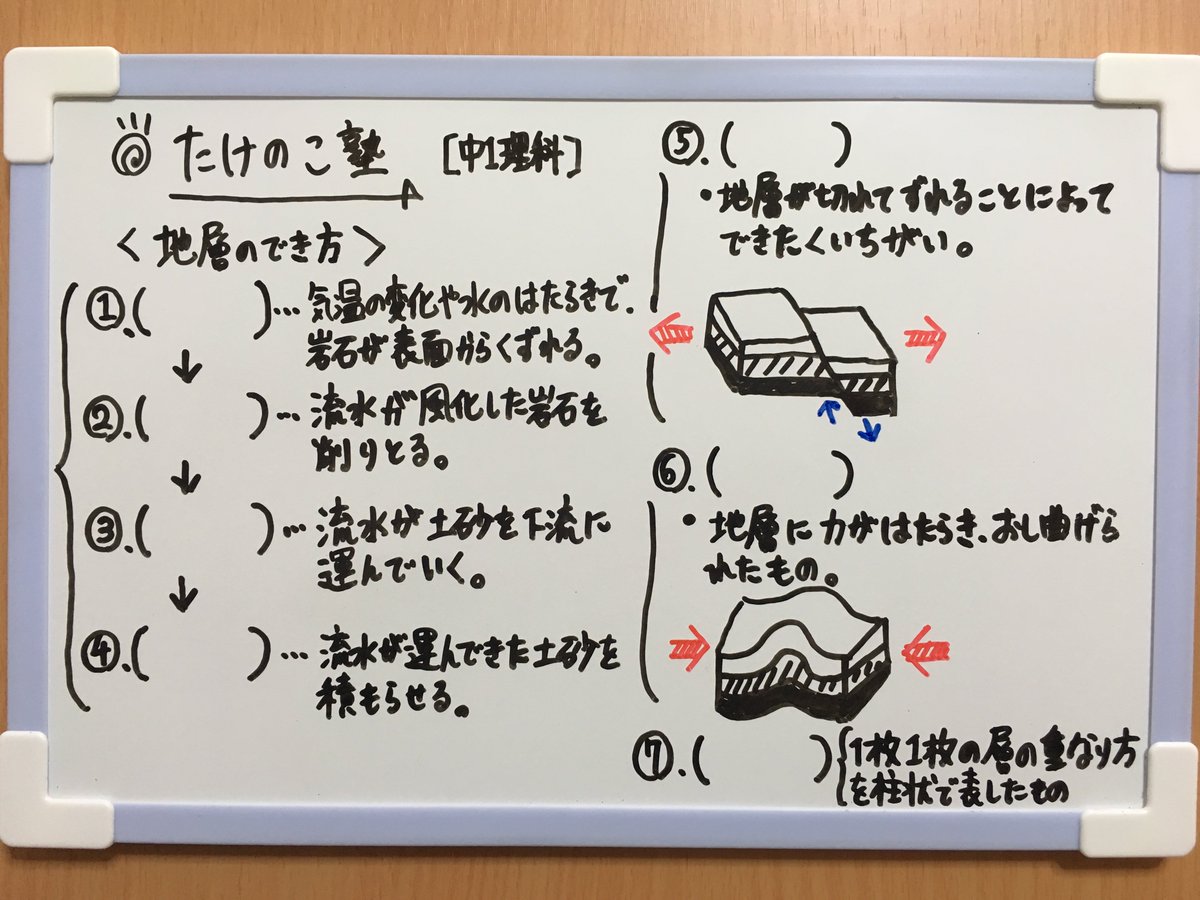 たけのこ塾 [中1理科]
<地層のでき方>
①.( )… 気温の変化や水のはたらきで、
岩石が表面からくずれる。
↓
②.( )… 流水が風化した岩石を
削りとる。
↓
③.( )… 流水が土砂を下流に
運んでいく。
↓
④.( )… 流水が運んできた土砂を
積もらせる。
⑤.( )
・地層が切れてずれることによって
できたくいちがい。
⑥.( )
・地層に力がはたらき、おし曲げら
れたもの。
⑦.( ) {1枚1枚の層の重なり方
を柱状で表したもの